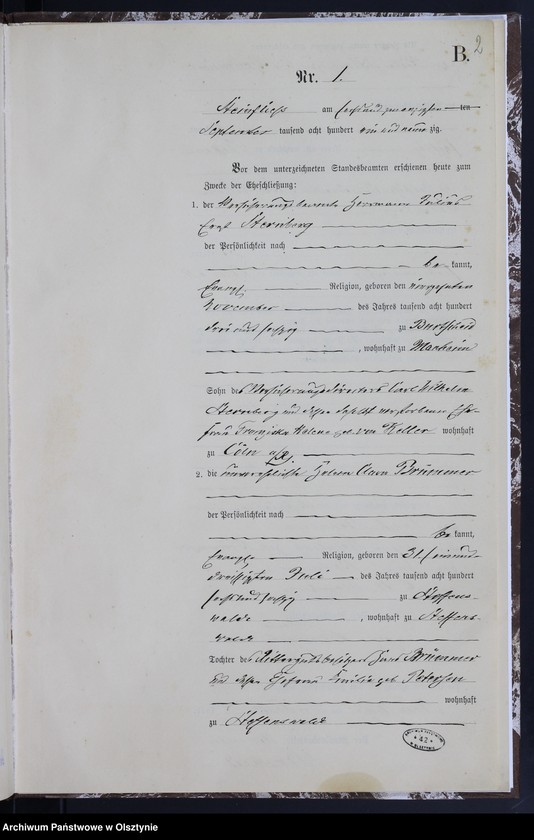 B. 2
Nr. 1.
am sechsundzwanzigsten ten
September tausend acht hundert ein und neun zig.
Vor dem unterzeichneten Standesbeamten erschienen heute zum
Zwecke der Eheschließung:
1. der Versicherungsbeamte Hermann Julius
Ernst Sternberg
der Persönlichkeit nach
be kannt,
Religion, geboren den
November des Jahres tausend acht hundert
drei und sechzig zu Burtscheid
, wohnhaft zu
Sohn des Versicherungsdirectors Carl Wilhelm
Sternberg und dessen daselbst verstorbener Ehe-
frau Franziska Helene geb. von Keller wohnhaft
zu Cöln a/R.
2. die unverehelichte Helene Clara Brümmer
der Persönlichkeit nach
be kannt,
Religion, geboren den 31. (einund-
dreißigsten Juli des Jahres tausend acht hundert
sechsundsechzig zu Steffens-
walde , wohnhaft zu Steffens-
walde
Tochter des Rittergutsbesitzers Brümmer
und dessen Ehefrau Emilie geb. Petersen
wohnhaft
zu Steffenswalde
42
Archiwum Państwowe w Olsztynie